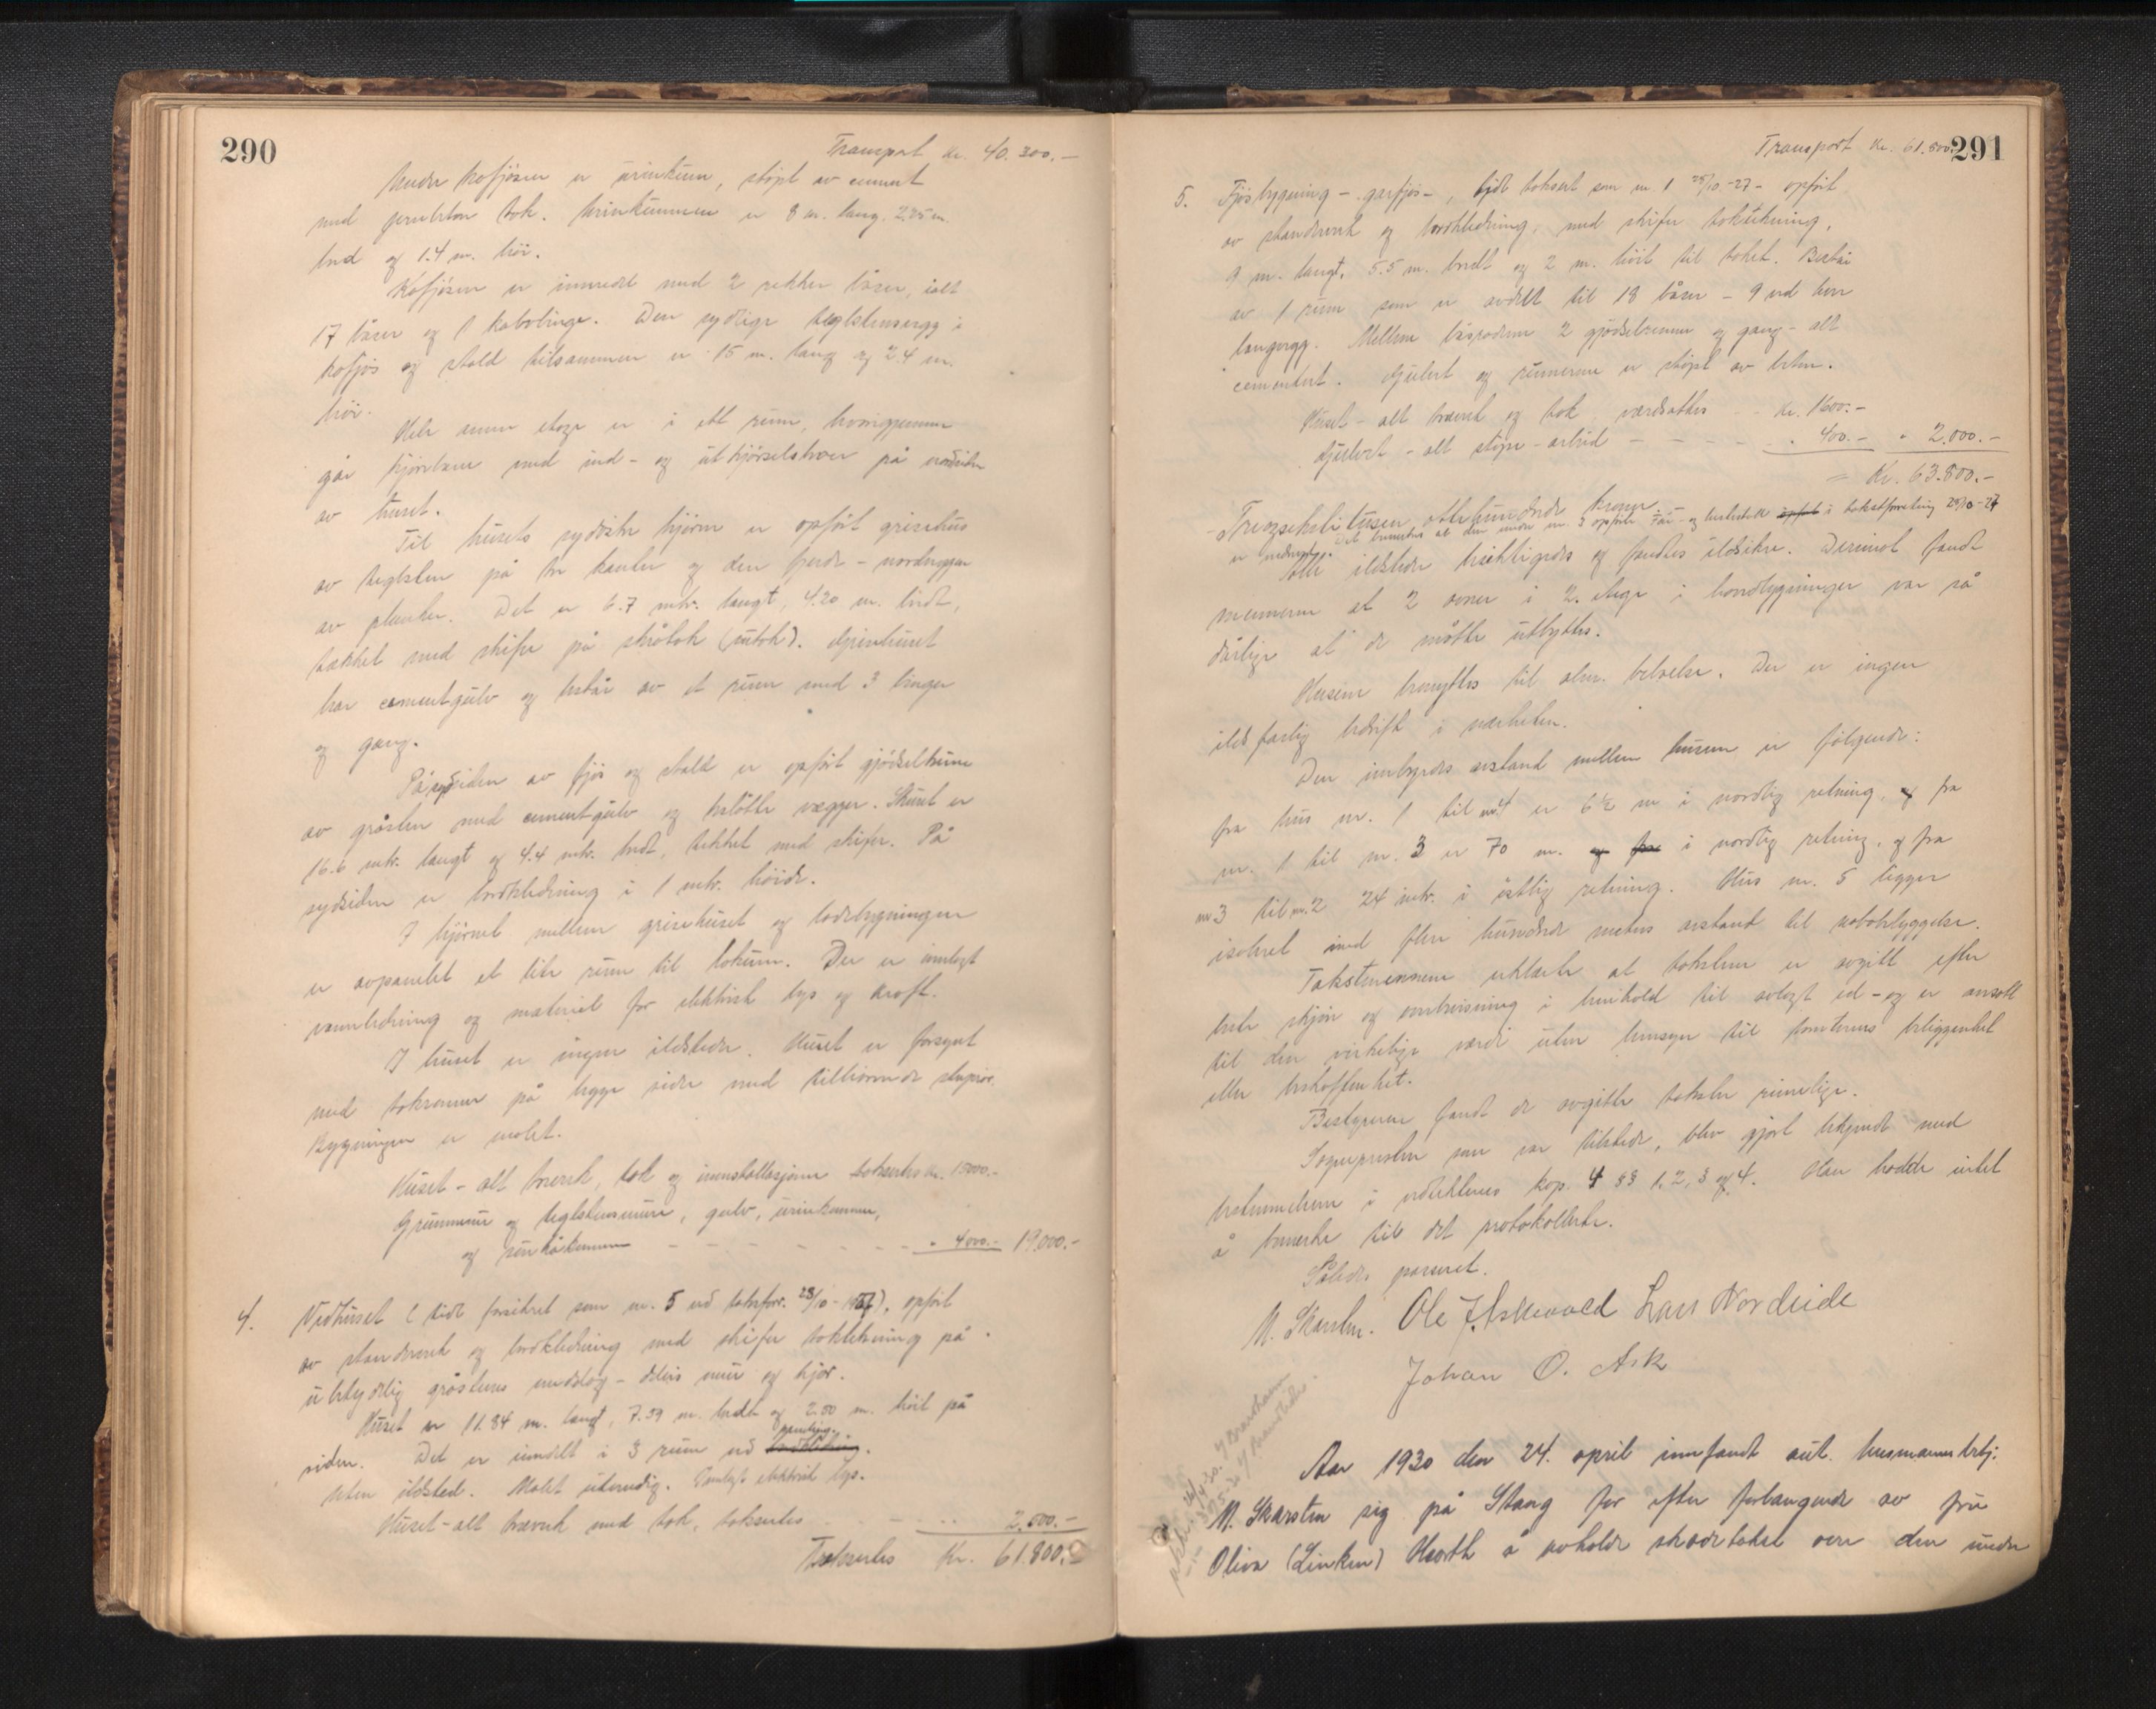 290
Transport kr. 40.300.—
Under kofjøsen er urinkum, støpt av cement
med jernbeton tak. Urinkummen er 8 m. lang, 2.25 m.
bred og 1.4 m. høi.
Kofjøsen er innredet med 2 rekker båser, ialt
17 båser og 1 kalvbinge. Den sydlige teglstensvegg i
kofjøs og stald tilsammen er 15 m. lang og 2.4 m.
høi.
Hele annen etage er i ett rum, hvorigjennem
går kjørebro med ind- og utkjørselsbroer på nordsiden
av huset.
Til husets sydøstre hjørne er opført grisehus
av teglsten på tre kanter og den fjerde - nordveggen
av planker. Det er 6.7 mtr. langt, 4.20 m. bredt,
tækket med skifer på skråtak (uttak). Grisehuset
har cementgulv og består av et rum med 3 binger
og gang.
På sydsiden av fjøs og stald er opført gjødselhus
av gråsten med cementgulv og pudsede vægger. Skuret er
16.6 mtr. langt og 4.4 mtr. bredt, tekket med skifer. På
sydsiden er bordkledning i 1 mtr. høide.
I hjørnet mellem grisehuset og ladebygningen
er avpanelet et lite rum til lokum. Der er innlagt
vannledning og materiel for elektrisk lys og kraft.
I huset er ingen ildsteder. Huset er forsynt
med takrenner på begge sider med tilhørende nedløpsrør.
Bygningen er malet.
Huset - alt treverk, tak og innstallasjoner takseres kr. 15000.—
Grunnmur og teglstensmur, gulv, urinkummer,
og - - - - - - " 4000.— 19.000.—
4. Vedhuset (sidst forsikret som nr. 5 ved takstforr. 28/10-1927), opført
av standverk og bordkledning med skifer taktekning på
ubetydelig gråstens underlag - delvis mur og kjør.
Huset er 11.84 m. langt, 7.59 m. bredt og 2.50 m. høit på
siden. Det er inndelt i 3 rum ved bordkledning. paneling.
Uten ildsted. Malet utvendig. Innlagt elektrisk lys.
Huset - alt treverk med tak, takseres . - - .. 2.500.—
Takseres Kr. 61.800.—
291
Transport kr. 61.800.
5. Fjøsbygning - garfjøs -, sidst taksert som nr. 1 28/10.-27 - opført
av standverk og bordkledning, med skifer taktekning,
9 m. langt, 5.5 m. bredt og 2 m. høit til taket. Består
av 1 rum som er avdelt til 18 båser - 9 ved hver
langvegg. Mellem båsradene 2 gjødselrenner og gang - alt
cementert. Gulvet og rennerne er støpt av beton.
Huset - alt treverk og tak værdsættes .. kr. 1600.—
Gulvet - alt støpe-arbeid - - - - " 400.— " 2.000.—
= Kr. 63.800.—
- Treogsekstitusen ottehundrede kroner -
Det bemerkes at den under nr. 3 opførte får- og hestestald opført i takstforretning 28/10-27
er nedrevet.
Alle ildsteder besiktigedes og fandtes ildsikre. Derimot fandt
mennerne at 2 ovner i 2. etage i hovedbygningen var så
dårlige at de måtte utbyttes.
Husene benyttes til alm. beboelse. Der er ingen
ildsfarlig bedrift i nærheten.
Den innbyrdes avstand mellem husene er følgende:
fra hus nr. 1 til nr. 4 er 6½ m i nordlig retning, og fra
nr. 1 til nr. 3 er 70 m. og fra i nordlig retning, og fra
nr. 3 til nr. 2 24 mtr. i østlig retning. Hus nr. 5 ligger
isoleret med flere hundrede meters avstand til nabobebyggelse.
Takstmennene erklærte at taksterne er avgitt efter
beste skjøn og overbevisning i henhold til avlagt ed - og er ansatt
til den virkelige verdi uten hensyn til tomternes beliggenhet
eller beskaffenhet.
Bestyreren fandt de avgitte takster rimelige.
Sognepresten som var tilstede, blev gjort bekjendt med
bestemmelsene i vedtektenes kap. 4 §§ 1, 2, 3 og 4. Han hadde intet
å bemerke til det protokollerte.
Således passeret.
N. Skarsten. Ole J. Askevold Lars Nordeide
Johan O. Ask
Aar 1930 den 24. april innfandt aut. husmannsbestyrer
N. Skarsten sig på Stang for efter forlangende av fru
Oliva (Linken) Hjorth å avholde skadetakst over den under